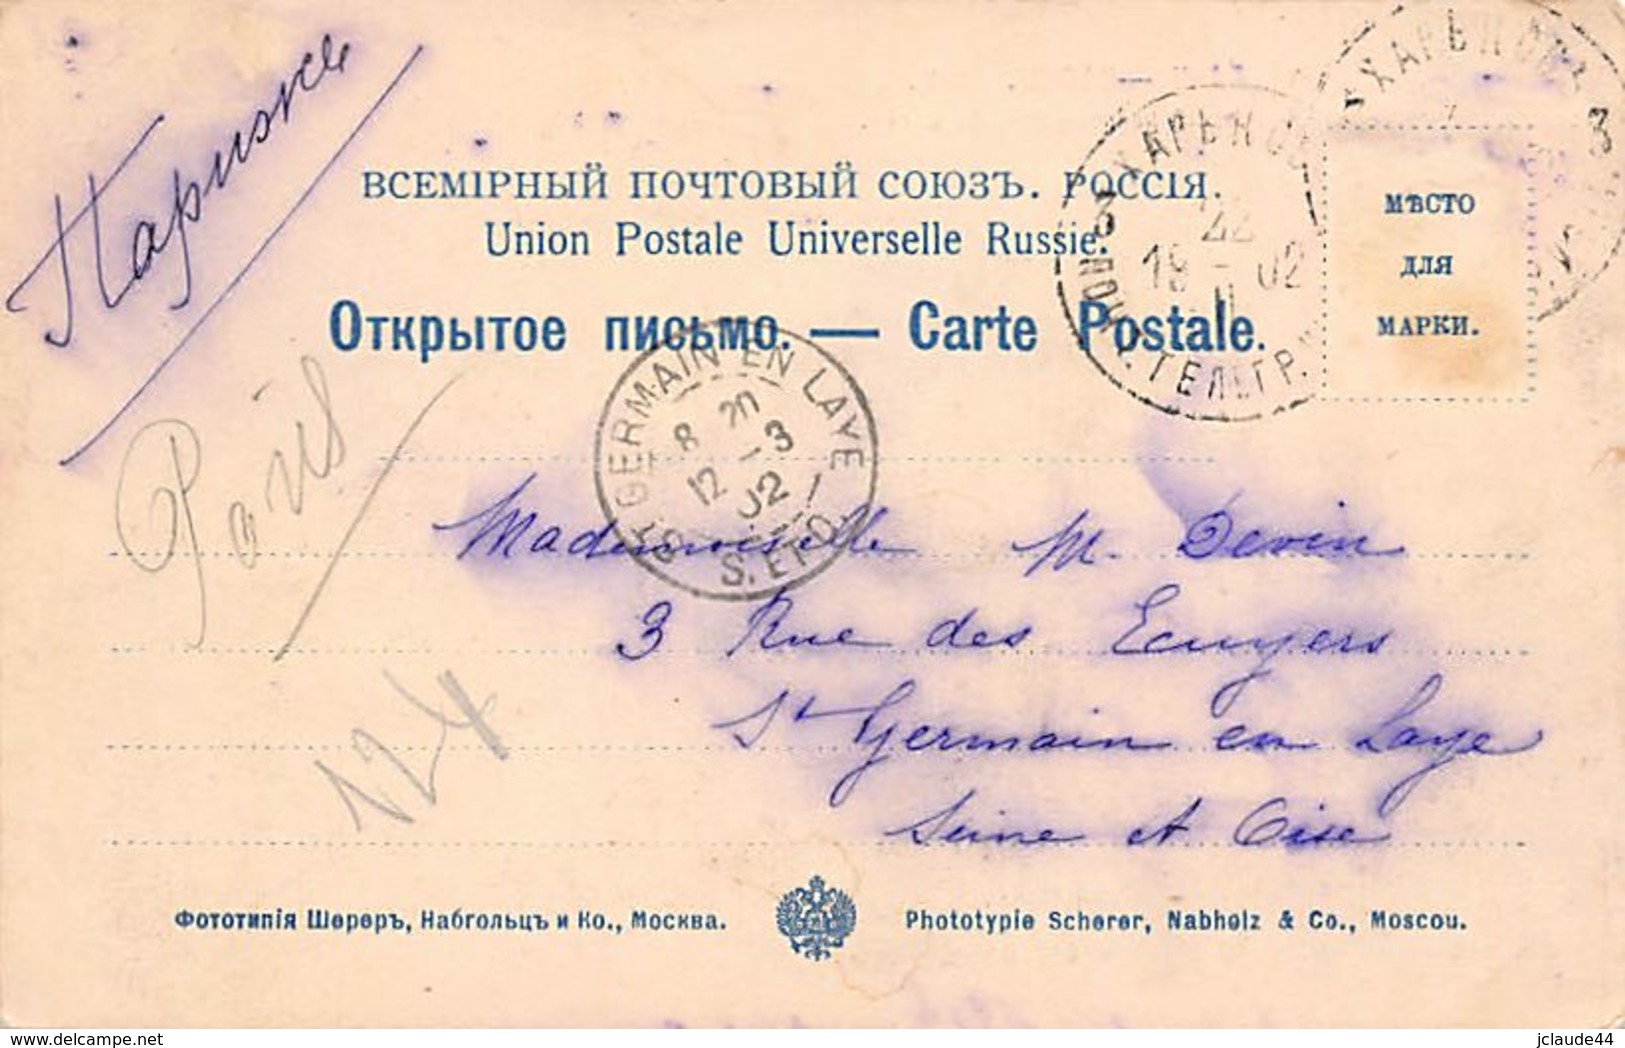 Парижъ
ХАРЬКОВЪ
3
ХАРЬКОВЪ
3
22
19 02
II
ПОЧ. ТЕЛЕГР.
ВСЕМІРНЫЙ ПОЧТОВЫЙ СОЮЗЪ. РОССІЯ.
Union Postale Universelle Russie.
Открытое письмо. — Carte Postale.
МѢСТО
ДЛЯ
МАРКИ.
Paris
ST GERMAIN EN LAYE
8 20
12 - 3
02
S. ET O.
Mademoiselle M. Devin
3 Rue des Ecuyers
St Germain en Laye
Seine et Oise
124
Фототипія Шереръ, Набгольцъ и Ко., Москва.
Phototypie Scherer, Nabholz & Co., Moscou.
delcampe.net
jclaude44